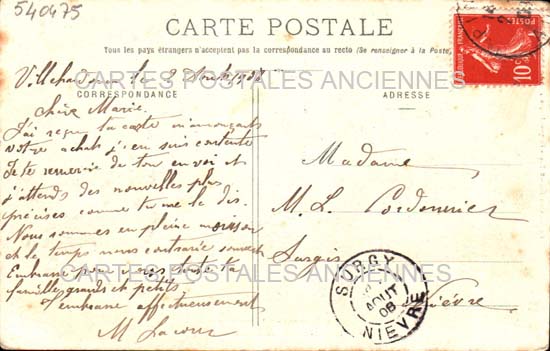 540475
CARTE POSTALE
Tous les pays étrangers n'acceptent pas la correspondance au recto (Se renseigner à la Poste)
POSTES
10
CARTES POSTALES ANCIENNES
CORRESPONDANCE
ADRESSE
le 2 Août 1908
Chère Marie
J'ai reçu ta carte m'annonçant
votre achat j'en suis contente
Je te remercie de ton envoi et
j'attends des nouvelles plus
précises comme tu me le dis.
Nous sommes en pleine moisson
et le temps nous contrarie souvent
Embrasse pour nous toute ta
famille grands et petits
J'embrasse affectueusement
M Lacour
Madame
M. L. Cordonnier
Surgy
Nièvre
SURGY
AOUT
08
NIEVRE
CARTES POSTALES ANCIENNES